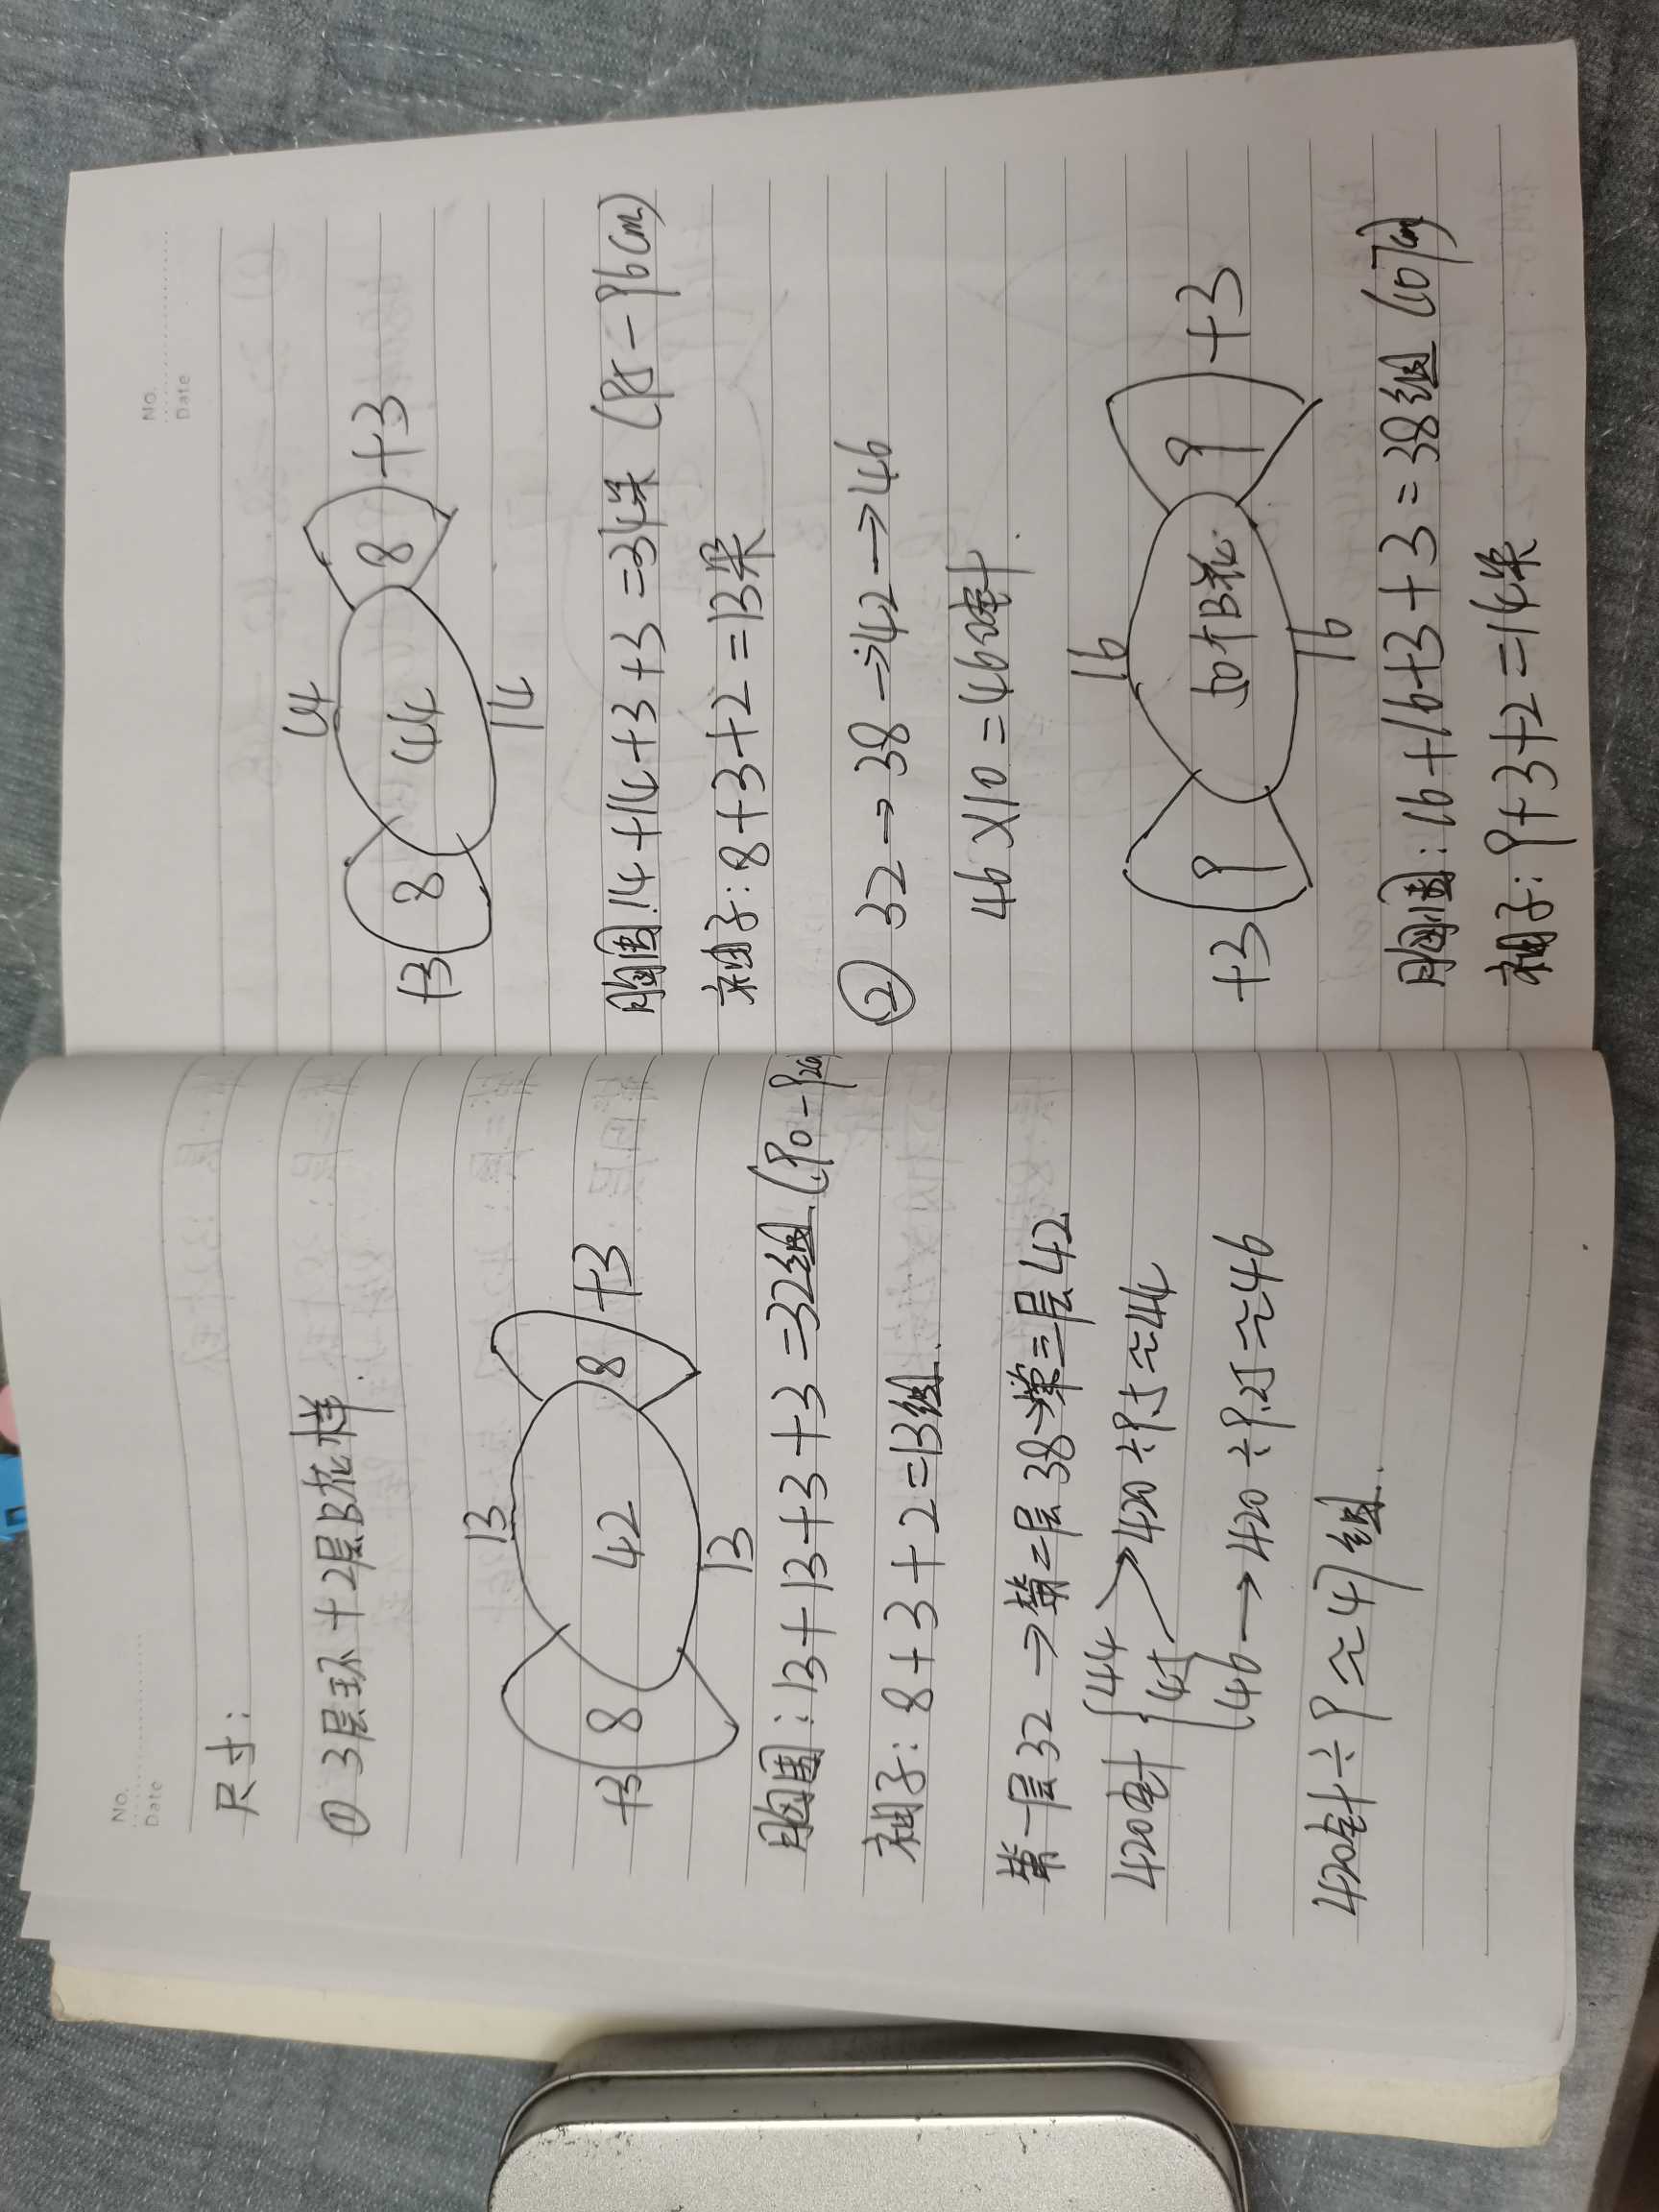 No.
Date
尺寸:
① 3层环+2层B花样.
13
+3 8 42 8 +3
13
胸围:13+13+3+3=32组.(90-92cm
袖子:8+3+2=13组.
第一层32→第二层38→第三层42
420针{44
45→420÷9.5≈44
46→420÷9.25≈46
420针÷9≈47组.
No.
Date
14
+3 8 44 8 +3
14
胸围:14+14+3+3=34朵 (95-96cm)
袖子:8+3+2=13朵
② 32→38→42→46
46×10=460针.
16
+3 9 50个B花. 9 +3
16
胸围:16+16+3+3=38组 (107cm)
袖子:9+3+2=14朵